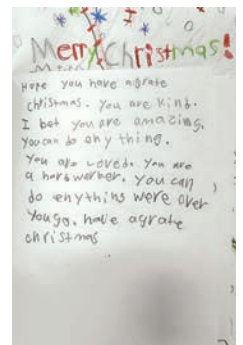 Merry Christmas!
Hope you have agrate
christmas. you are kind.
I bet you are amazing.
you can do any thing.
You are loved. You are
a hardworker. you can
do enything were over
you go. have agrate
christmas